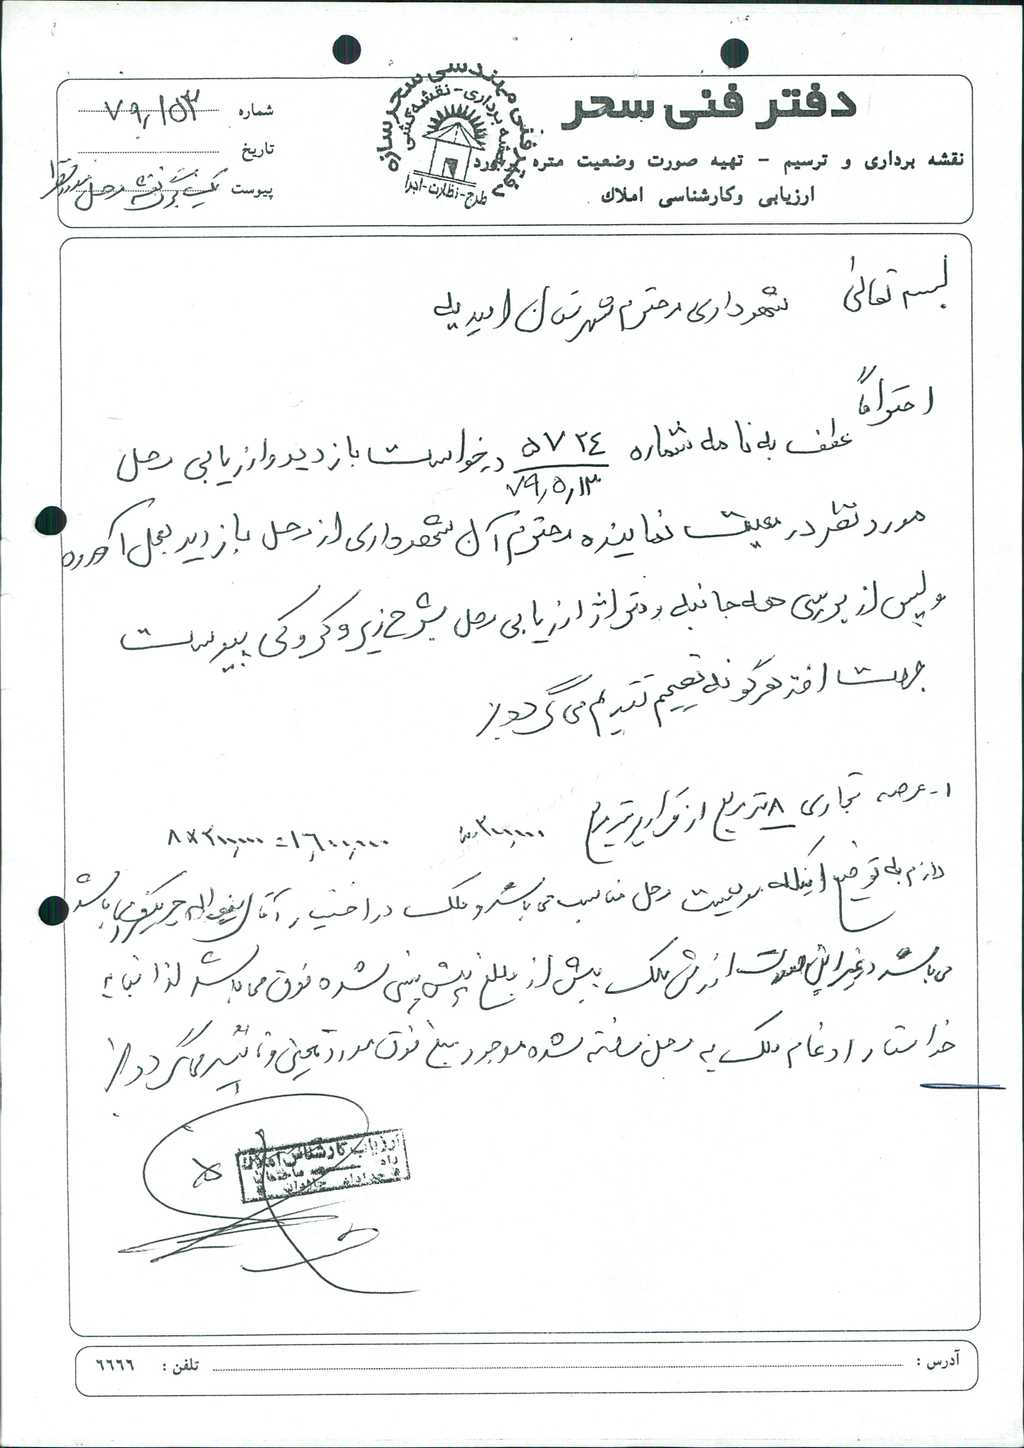 دفتر فنی سحر
نقشه برداری و ترسیم - تهیه صورت وضعیت متره برآورد
ارزیابی وکارشناسی املاك
دفتر فنی مهندسی سحر سازه
نقشه برداری - نقشه کشی
طرح - نظارت - اجرا
شماره ۷۹/۱۵۳
تاریخ
پیوست یک برگ نقشه محل
بسمه تعالی
شهرداری محترم شهرستان امیدیه
احتراماً
عطف به نامه شماره ۵۷۲۴ درخواست بازدید و ارزیابی محل
۷۹٫۵٫۱۳
مورد نظر در معیت نماینده محترم آن شهرداری از محل بازدید بعمل آمده
و پس از بررسی همه جانبه و متراژ ارزیابی محل بشرح زیر و کروکی پیوست
جهت اخذ هرگونه تصمیم تقدیم می گردد
۱- عرصه تجاری ۸ مترمربع از قرار هر مترمربع ۲۰۰٫۰۰۰ ۸×۲۰۰٫۰۰۰=۱٫۶۰۰٫۰۰۰
لازم به توضیح اینکه موقعیت محل مناسب می باشد و ملک در اختیار آقای می باشد
می باشد در غیر این صورت ارزش ملک بیش از مبلغ پیش بینی شده فوق می باشد لذا بنا به
خواستار ادغام ملک به محل ساخته شده موجود مبلغ فوق مورد تخمین و تائید می گردد
ارزیاب کارشناس املاك
راه ساختمان
آدرس :
تلفن : ۶۶۶۶